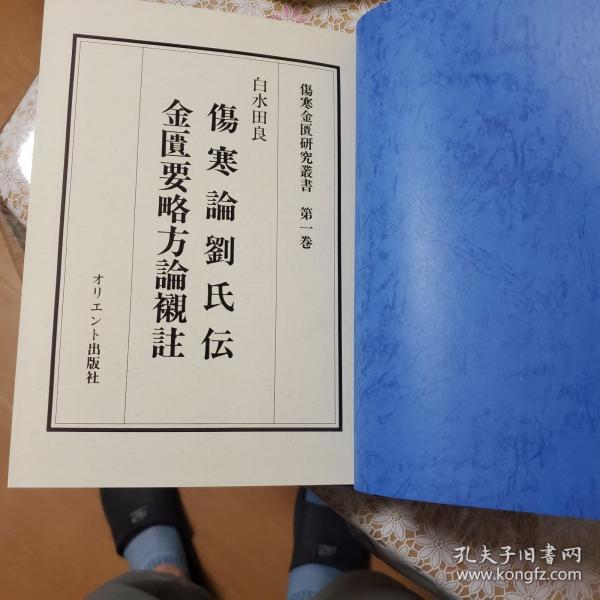 傷寒金匱研究叢書 第一巻
白水田良
傷寒論劉氏伝
金匱要略方論襯註
オリエント出版社
孔夫子旧书网
www.kongfz.com